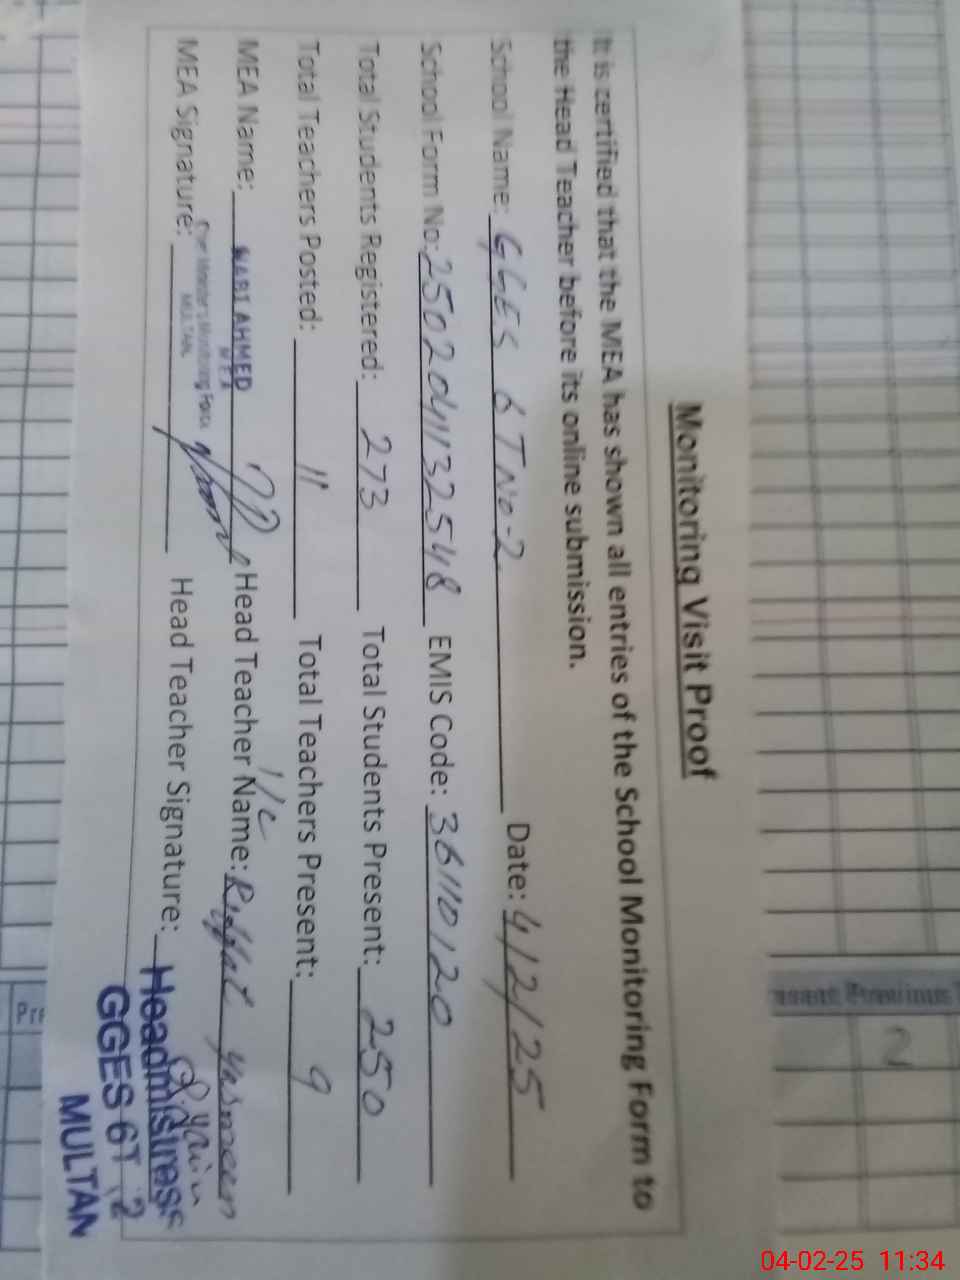 Monitoring Visit Proof
It is certified that the MEA has shown all entries of the School Monitoring Form to
the Head Teacher before its online submission.
School Name: GGES 6T No-2 Date: 4/2/25
School Form No: 2502041132548 EMIS Code: 36110120
Total Students Registered: 273 Total Students Present: 250
Total Teachers Posted: 11 Total Teachers Present: 9
I/C
MEA Name: WARI AHMED Head Teacher Name: Riffat Yasmeen
MEA
Chief Minister's Monitoring Force
MULTAN
MEA Signature: Head Teacher Signature:
Headmistress
GGES 6T 2
MULTAN
Previous
2
Pre
04-02-25 11:34